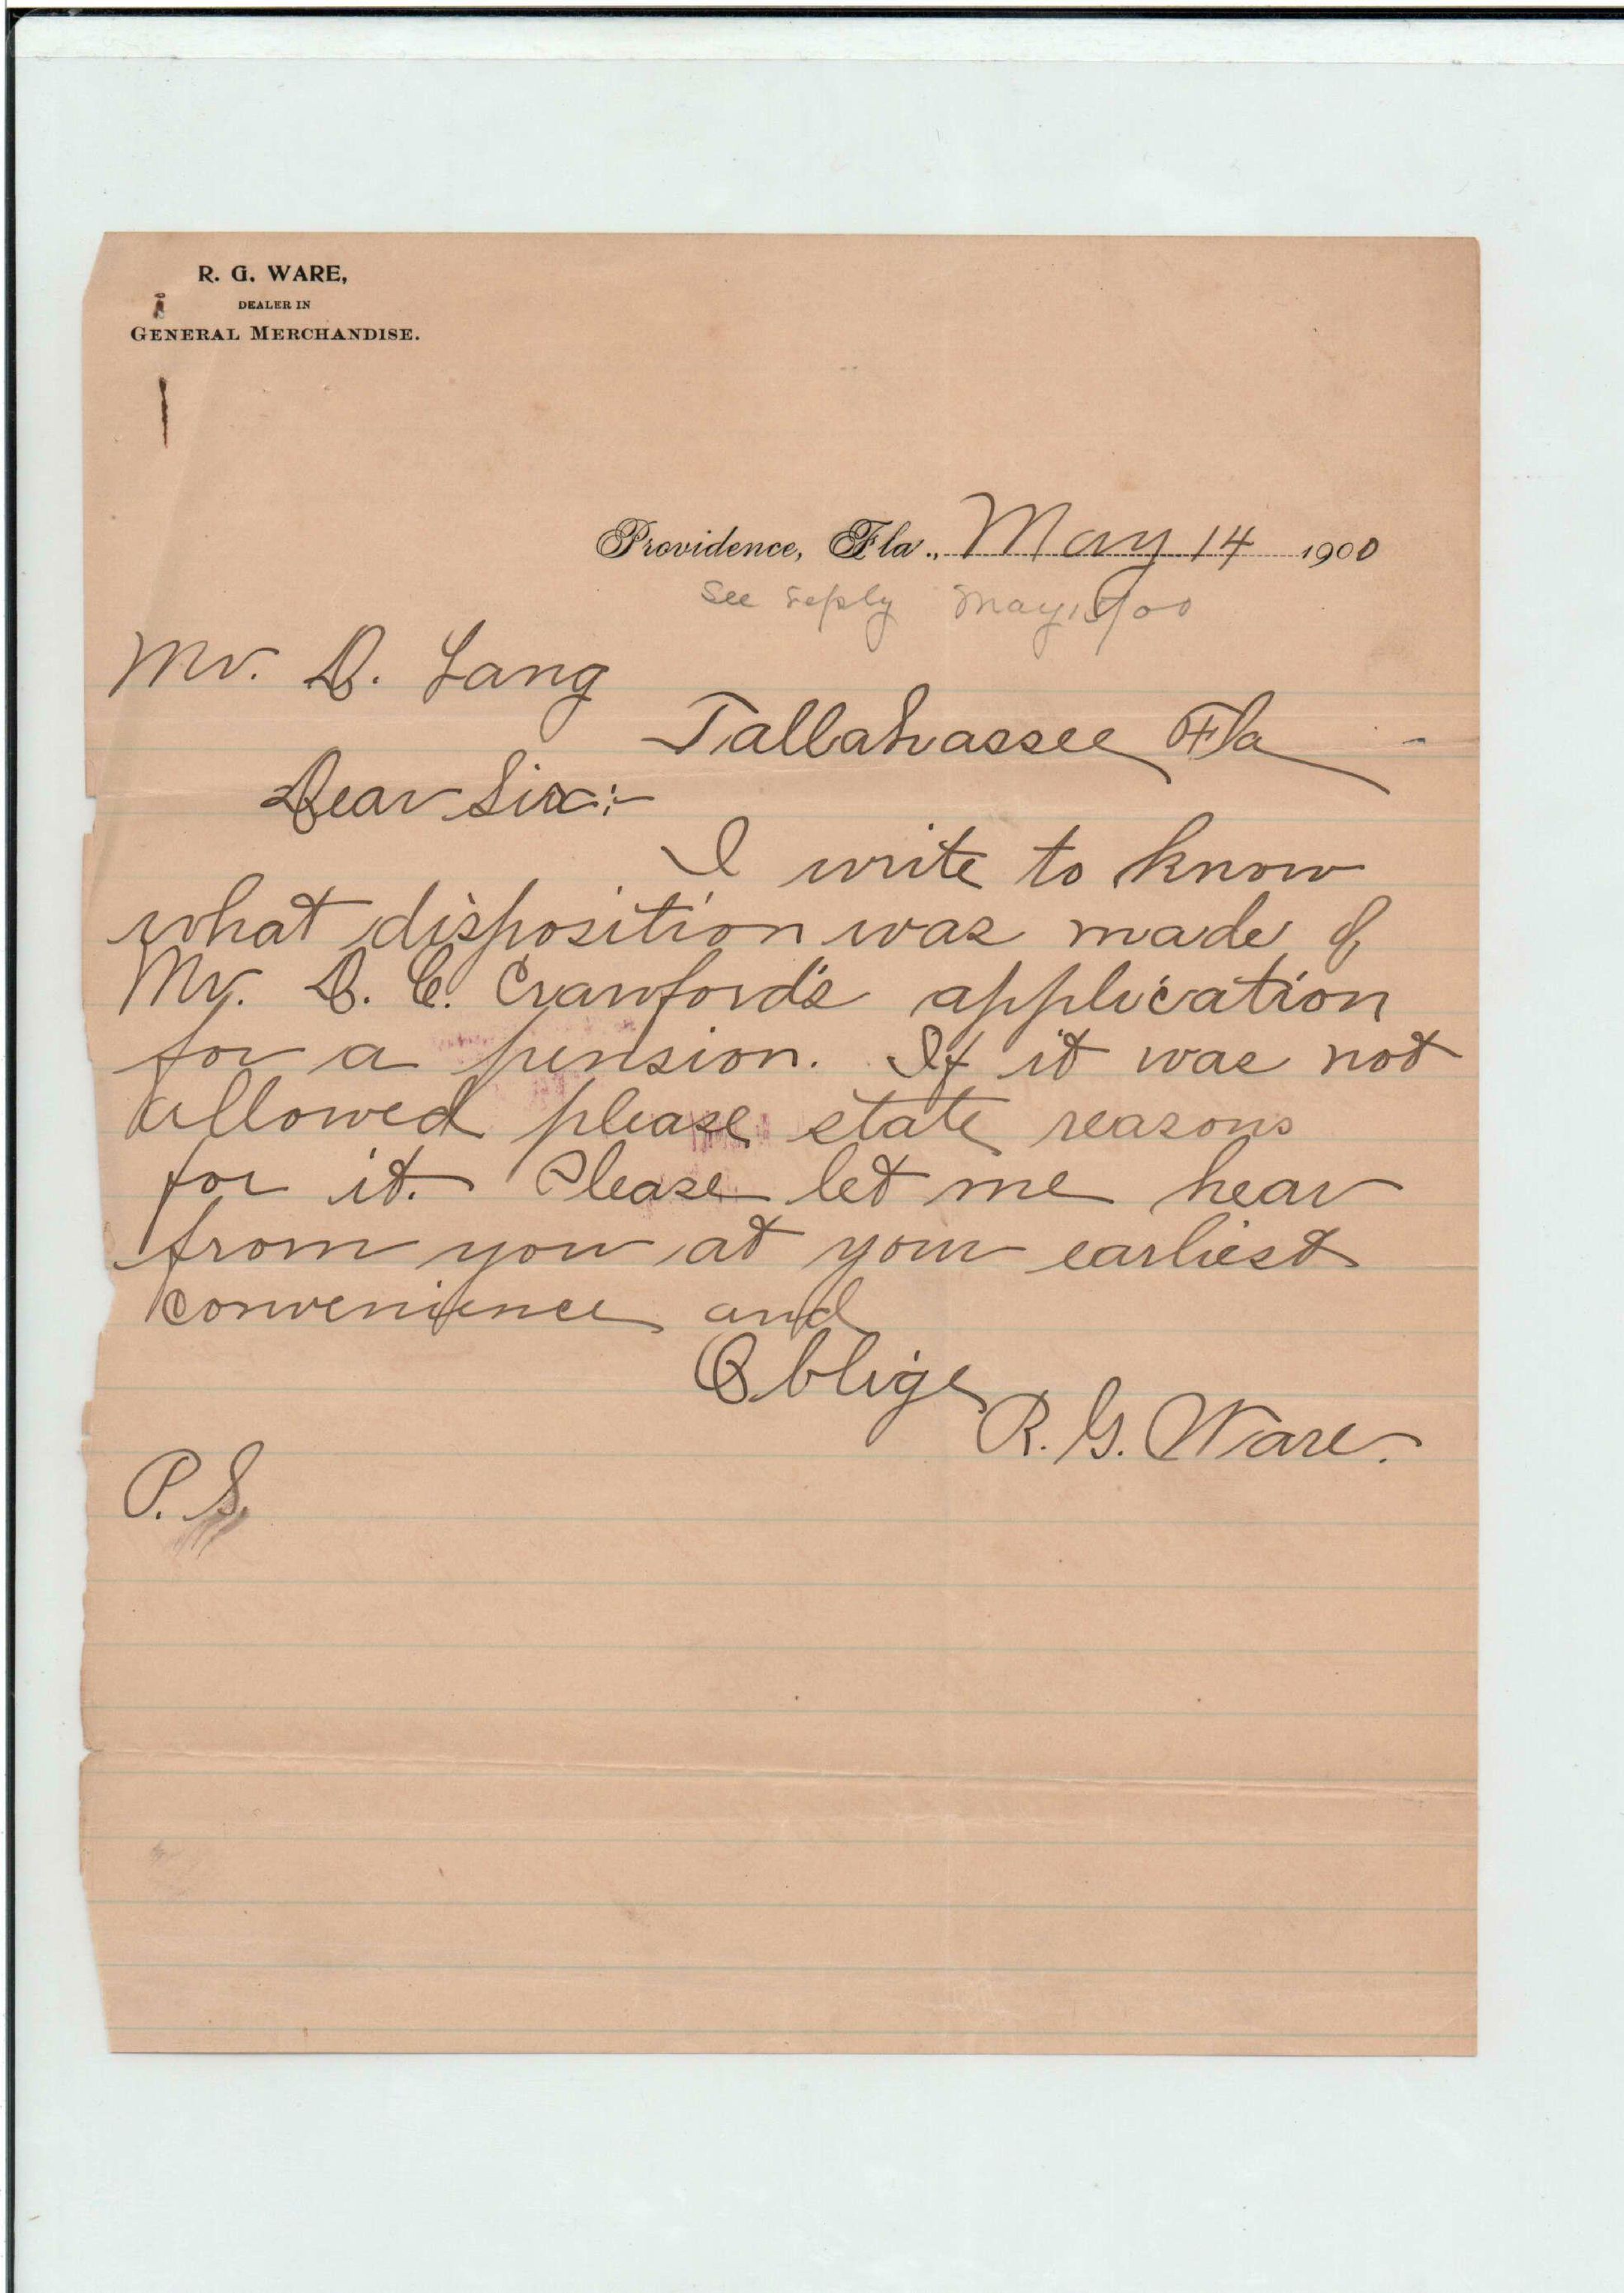 R. G. WARE,
DEALER IN
GENERAL MERCHANDISE.
Providence, Fla., May 14 1900
See reply May 15/00
Mr. D. Lang
Tallahassee Fla
Dear Sir:-
I write to know
what disposition was made of
Mr. D. C. Crawford's application
for a pension. If it was not
allowed please state reasons
for it. Please let me hear
from you at your earliest
convenience and
Oblige
R. G. Ware.
P. S.